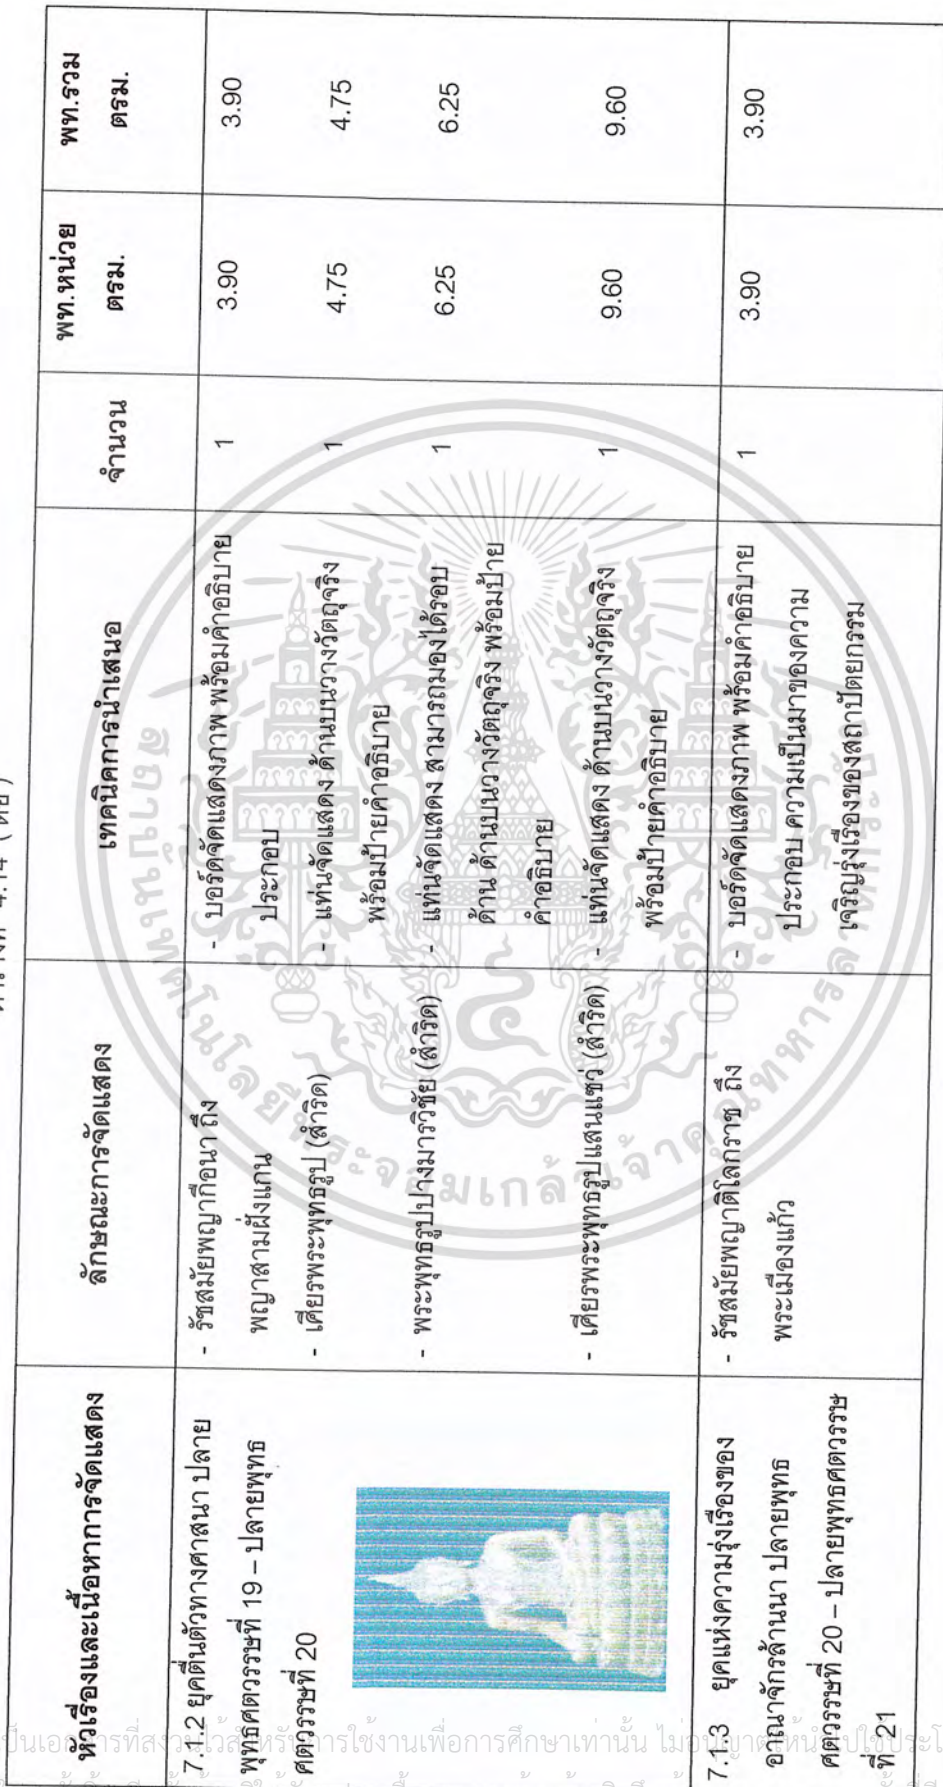 ตารางที่ 4.14 (ต่อ)
หัวเรื่องและเนื้อหาการจัดแสดง
ลักษณะการจัดแสดง
เทคนิคการนำเสนอ
จำนวน
พท.หน่วย
ตรม.
พท.รวม
ตรม.
7.1.2 ยุคตื่นตัวทางศาสนา ปลาย
พุทธศตวรรษที่ 19 – ปลายพุทธ
ศตวรรษที่ 20
- รัชสมัยพญากือนา ถึง
พญาสามฝั่งแกน
- บอร์ดจัดแสดงภาพ พร้อมคำอธิบาย
ประกอบ
1
3.90
3.90
- เศียรพระพุทธรูป (สำริด)
- แท่นจัดแสดง ด้านบนวางวัตถุจริง
พร้อมป้ายคำอธิบาย
1
4.75
4.75
- พระพุทธรูปปางมารวิชัย (สำริด)
- แท่นจัดแสดง สามารถมองได้รอบ
ด้าน ด้านบนวางวัตถุจริง พร้อมป้าย
คำอธิบาย
1
6.25
6.25
- เศียรพระพุทธรูปแสนแซว่ (สำริด)
- แท่นจัดแสดง ด้านบนวางวัตถุจริง
พร้อมป้ายคำอธิบาย
1
9.60
9.60
7.1.3 ยุคแห่งความรุ่งเรืองของ
อาณาจักรล้านนา ปลายพุทธ
ศตวรรษที่ 20 – ปลายพุทธศตวรรษ
ที่ 21
- รัชสมัยพญาติโลกราช ถึง
พระเมืองแก้ว
- บอร์ดจัดแสดงภาพ พร้อมคำอธิบาย
ประกอบ ความเป็นมาของความ
เจริญรุ่งเรืองของสถาปัตยกรรม
1
3.90
3.90
สถาบันเทคโนโลยีพระจอมเกล้าเจ้าคุณทหารลาดกระบัง
เป็นเอกสารที่สงวนไว้สำหรับการใช้งานเพื่อการศึกษาเท่านั้น ไม่อนุญาตให้นำไปใช้ประโ